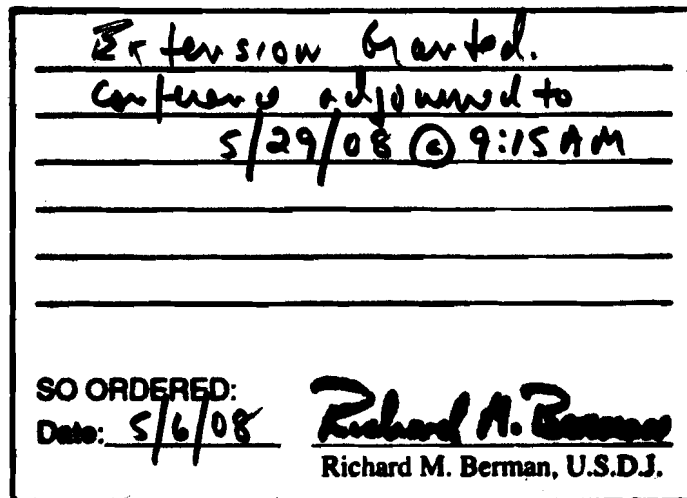 Extension Granted.
Conference adjourned to
5/29/08 @ 9:15 AM
SO ORDERED:
Date: 5/6/08
Richard M. Berman
Richard M. Berman, U.S.D.J.